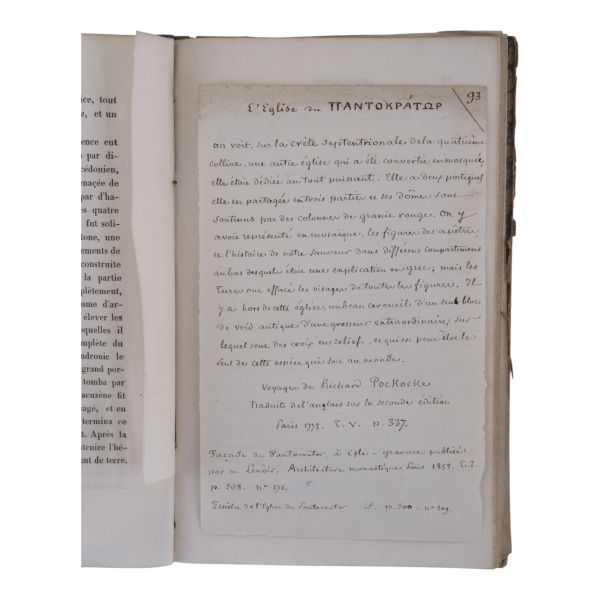 ice, tout
e, et un
ence eut
par di-
cédonien,
enaçée de
par d'ha-
es quatre
fut soli-
tone, une
ements de
construite
la partie
plètement,
mme d'ar-
élever les
squelles il
mplète du
ndronic le
grand por-
tomba par
acuzène fit
sagé, et en
termina ce
t. Après la
truire l'hé-
ent de terre.
93
L'Eglise du ΠΑΝΤΟΚΡΆΤΩΡ
on voit, sur la crête septentrionale de la quatrième
colline, une autre église qui a été convertie en mosquée,
elle étoit dédiée au tout puissant. Elle a deux portiques
elle en partagée en trois parties et ses dômes sont
soutenus par des colonnes de granit rouge. On y
avoit représenté en mosaïque, les figures des apôtres
et l'histoire de notre sauveur dans différens compartimens
au bas desquels étoit une explication en grec, mais les
Turcs ont effacé les visages de toutes les figures. Il
y a hors de cette église, un beau cercueil d'un seul bloc
de verd antique d'une grosseur extraordinaire, sur
lequel sont des croix en relief, et qui on peut être le
seul de cette espèce qui soit au monde.
Voyages de Richard Pockocke
traduits de l'anglais sur la seconde édition
Paris 1772. T. V. p. 337.
Façade du Pantocrator, à Cple - gravure publiée
par m. Lenoir. Architecture monastique Paris 1852. T. I.
p. 368. n° 176.
Fenêtre de l'Eglise du Pantocrator id. p. 300 - n° 209.